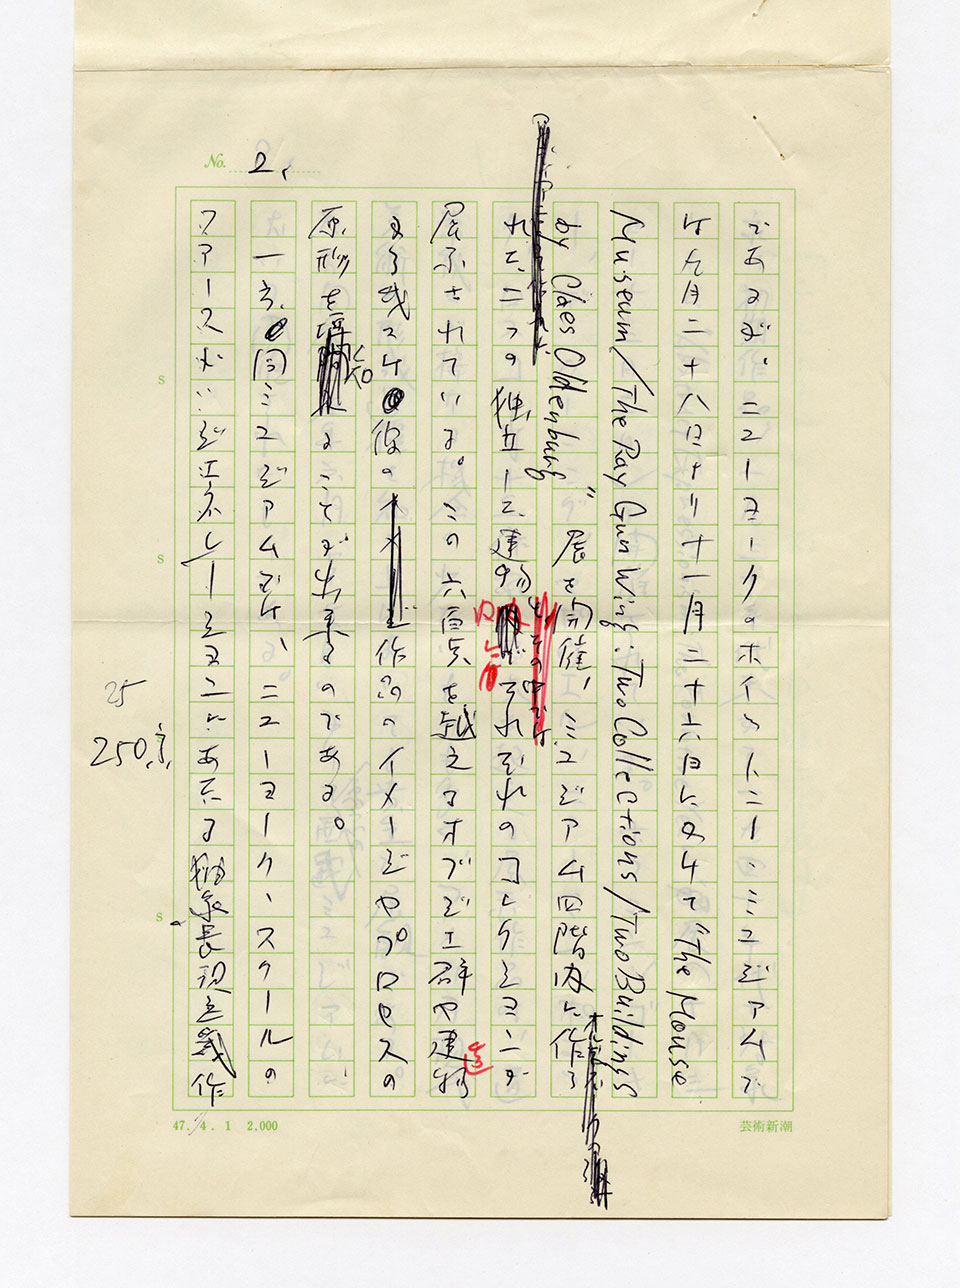 No. 2,
であるが、ニューヨークのホイットニー・ミュージアムで
は九月二十八日より十一月二十六日にかけて“The Mouse
Museum/The Ray Gun Wing: Two Collections/Two Buildings
by Claes Oldenburg” 展を開催、ミュージアム四階内に作ら
れた二つの独立した建物にそれぞれのコレクションが
展示されている。この六百点を越えるオブジェ群や建造物
をみる我々は彼の作品のイメージやプロセスの
原形を知ることが出来るのである。
一方、同ミュージアムでは、ニューヨーク・スクールの
ファースト・ジェネレーションにあたる 作
25
250
47. 4. 1 2,000
芸術新潮
S
S
S